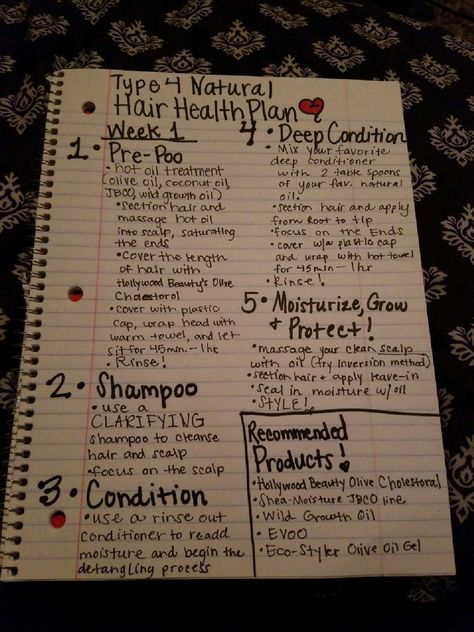 Type 4 Natural
Hair Health Plan
Week 1
1. Pre-Poo
• hot oil treatment
(olive oil, coconut oil,
JBCO, wild growth oil)
• section hair and
massage hot oil
into scalp, saturating
the ends
• cover the length
of hair with
Hollywood Beauty's Olive
Cholesterol
• cover with plastic
cap, wrap head with
warm towel, and let
sit for 45min.-1hr
• Rinse!
2. Shampoo
• use a
CLARIFYING
shampoo to cleanse
hair and scalp
• focus on the scalp
3. Condition
• use a rinse out
conditioner to readd
moisture and begin the
detangling process
4. Deep Condition
• Mix your favorite
deep conditioner
with 2 table spoons
of your fav. natural
oil.
• section hair and apply
from Root to tip
• focus on the Ends
• cover w/a plastic cap
and wrap with hot towel
for 45min-1hr
• Rinse!
5. Moisturize, Grow
+ Protect!
• massage your clean scalp
with oil (try inversion method)
• section hair + apply leave-in
• seal in moisture w/oil
• STYLE!
Recommended
Products!
• Hollywood Beauty Olive Cholestoral
• Shea-Moisture JBCO line
• Wild Growth Oil
• EVOO
• Eco-Styler Olive Oil Gel